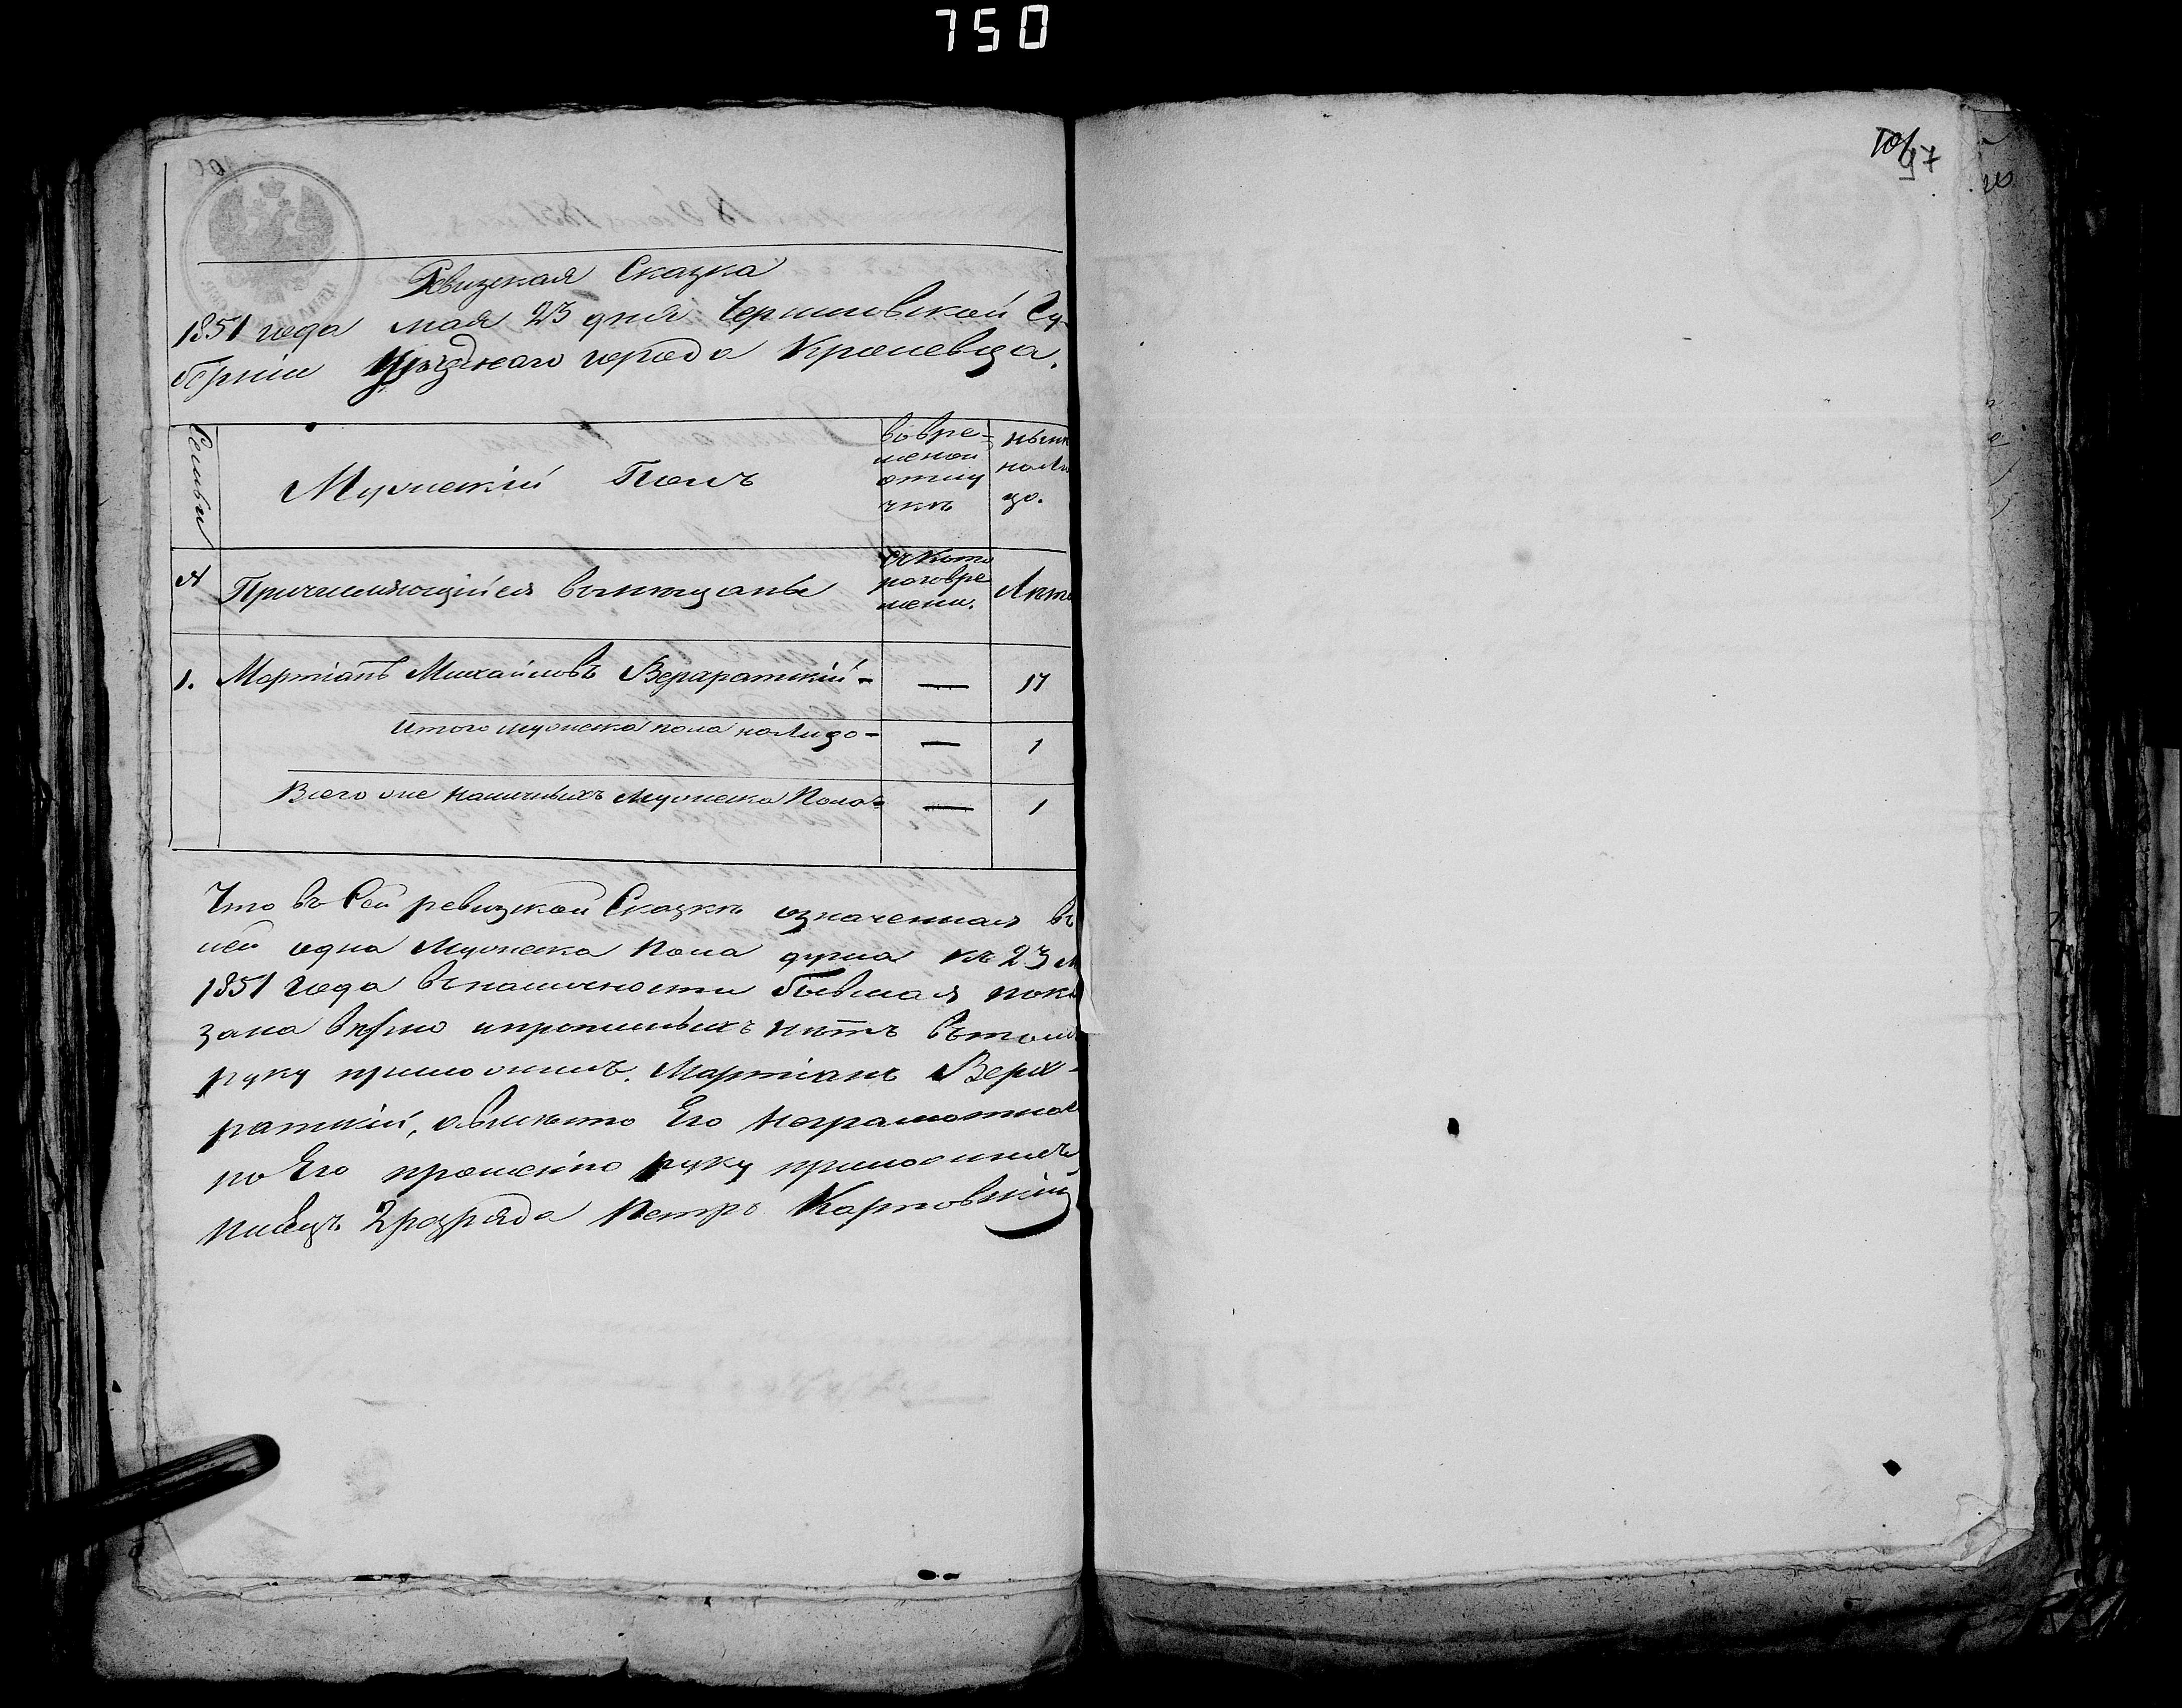 750
101
97
Ревизская Сказка
1851 года мая 23 дня Черниговской Гу
берніи Уѣзднаго города Кролевца.
Семьи
Мужескій Полъ
вовре-
меной
отлу
чкѣ
нынѣ
нали
цо.
№
Причисляющійся вмѣщане
съ кото
раговре
мени.
Лѣта
1.
Мартіанъ Михайловъ Верхратскій -
—
17
Итого мужеска пола налицо -
—
1
Всего же наличныхъ мужеска Пола -
—
1
Что въ Сей ревизской Сказкѣ означенная въ
ней одна Мужеска Пола душа къ 23 м
1851 года вналичности бывшая пока
зана вѣрно ипрописныхъ нѣтъ вътомъ
руку приложилъ. Мартіанъ Верх-
ратскій, авмѣсто Его неграмотнаго
по Его прошенію руку приложилъ
писецъ 2 разряда Петръ Карповскій